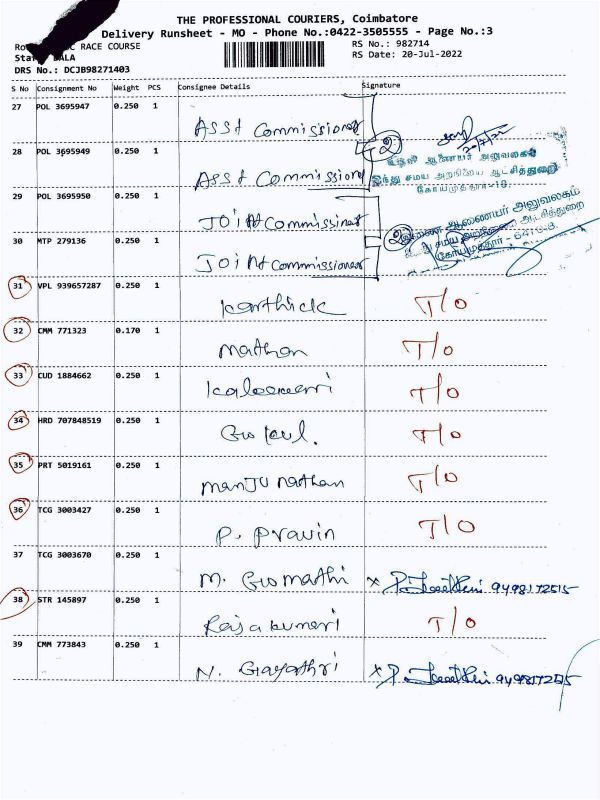 THE PROFESSIONAL COURIERS, Coimbatore
Delivery Runsheet - MO - Phone No.:0422-3505555 - Page No.:3
RACE COURSE
RS No.: 982714
RS Date: 20-Jul-2022
DRS No.: DCJB98271403
S No Consignment No Weight PCS Consignee Details Signature
27 POL 3695947 0.250 1
Asst Commissioner
28 POL 3695949 0.250 1 2 20/7/22
Asst Commissioner
உதவி ஆணையர் அலுவலகம்
இந்து சமய அறநிலைய ஆட்சித்துறை
29 POL 3695950 0.250 1
கோயமுத்தூர்-18.
Joint Commissioner
30 MTP 279136 0.250 1 2
இணை ஆணையர் அலுவலகம்
கோயமுத்தூர் -
Joint Commissioner
31 VPL 939657287 0.250 1
Karthick T/O
32 CMM 771323 0.170 1
Mathan T/O
33 CUD 1884662 0.250 1
T/O
34 HRD 707848519 0.250 1
Gokul. T/O
35 PRT 5019161 0.250 1
Manju nathan T/O
36 TCG 3003427 0.250 1
P. Pravin T/O
37 TCG 3003670 0.250 1
M. Gomathi x 9498172515
38 STR 145897 0.250 1
Rajakumari T/O
39 CMM 773843 0.250 1
N. Gayathri x